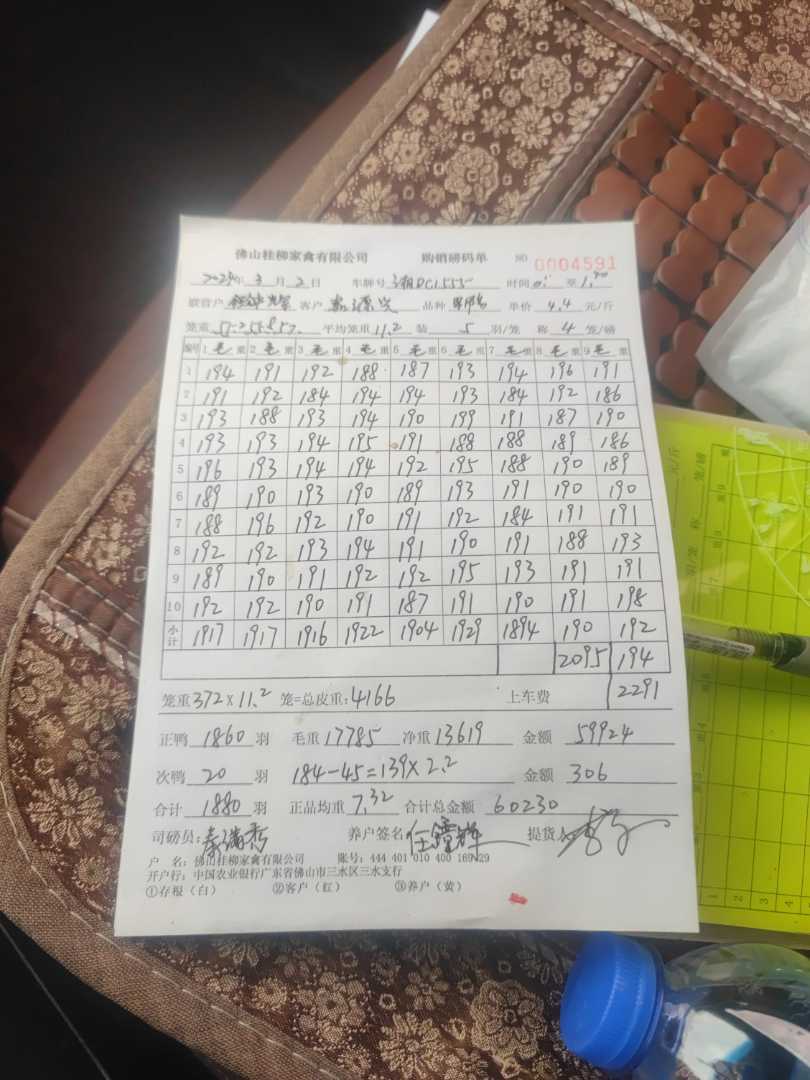 佛山桂柳家禽有限公司 购销磅码单 NO 0004591
2024年 3 月 2 日 车牌号 湘DC1555 时间 至
联营户 客户 品种 单价 4.4 元/斤
笼重 平均笼重 11.2 装 5 羽/笼 称 4 笼/磅
编号 1 毛 重 2 毛 重 3 毛 重 4 毛 重 5 毛 重 6 毛 重 7 毛 重 8 毛 重 9 毛 重
1 194 191 192 188 187 193 194 196 191
2 191 192 184 194 194 193 184 192 186
3 193 188 193 194 190 199 191 187 190
4 193 193 194 195 191 188 188 189 186
5 196 193 194 194 192 195 188 190 189
6 189 190 193 190 189 193 191 190 190
7 188 196 192 190 191 192 184 191 191
8 192 192 193 194 191 190 191 188 193
9 189 190 191 192 192 195 193 191 191
10 192 192 190 191 187 191 190 191 198
小计 1917 1917 1916 1922 1904 1929 1894 190 192
2095 194
笼重 372×11.2 笼=总皮重: 4166 上车费 2291
正鸭 1860 羽 毛重 17785 净重 13619 金额 59924
次鸭 20 羽 184-45=139×2.2 金额 306
合计 1880 羽 正品均重 7.32 合计总金额 60230
司磅员: 养户签名 提货人
户 名: 佛山桂柳家禽有限公司 账号: 444 401 010 400 169 29
开户行: 中国农业银行广东省佛山市三水区三水支行
①存根(白) ②客户(红) ③养户(黄)
元/斤
笼/磅